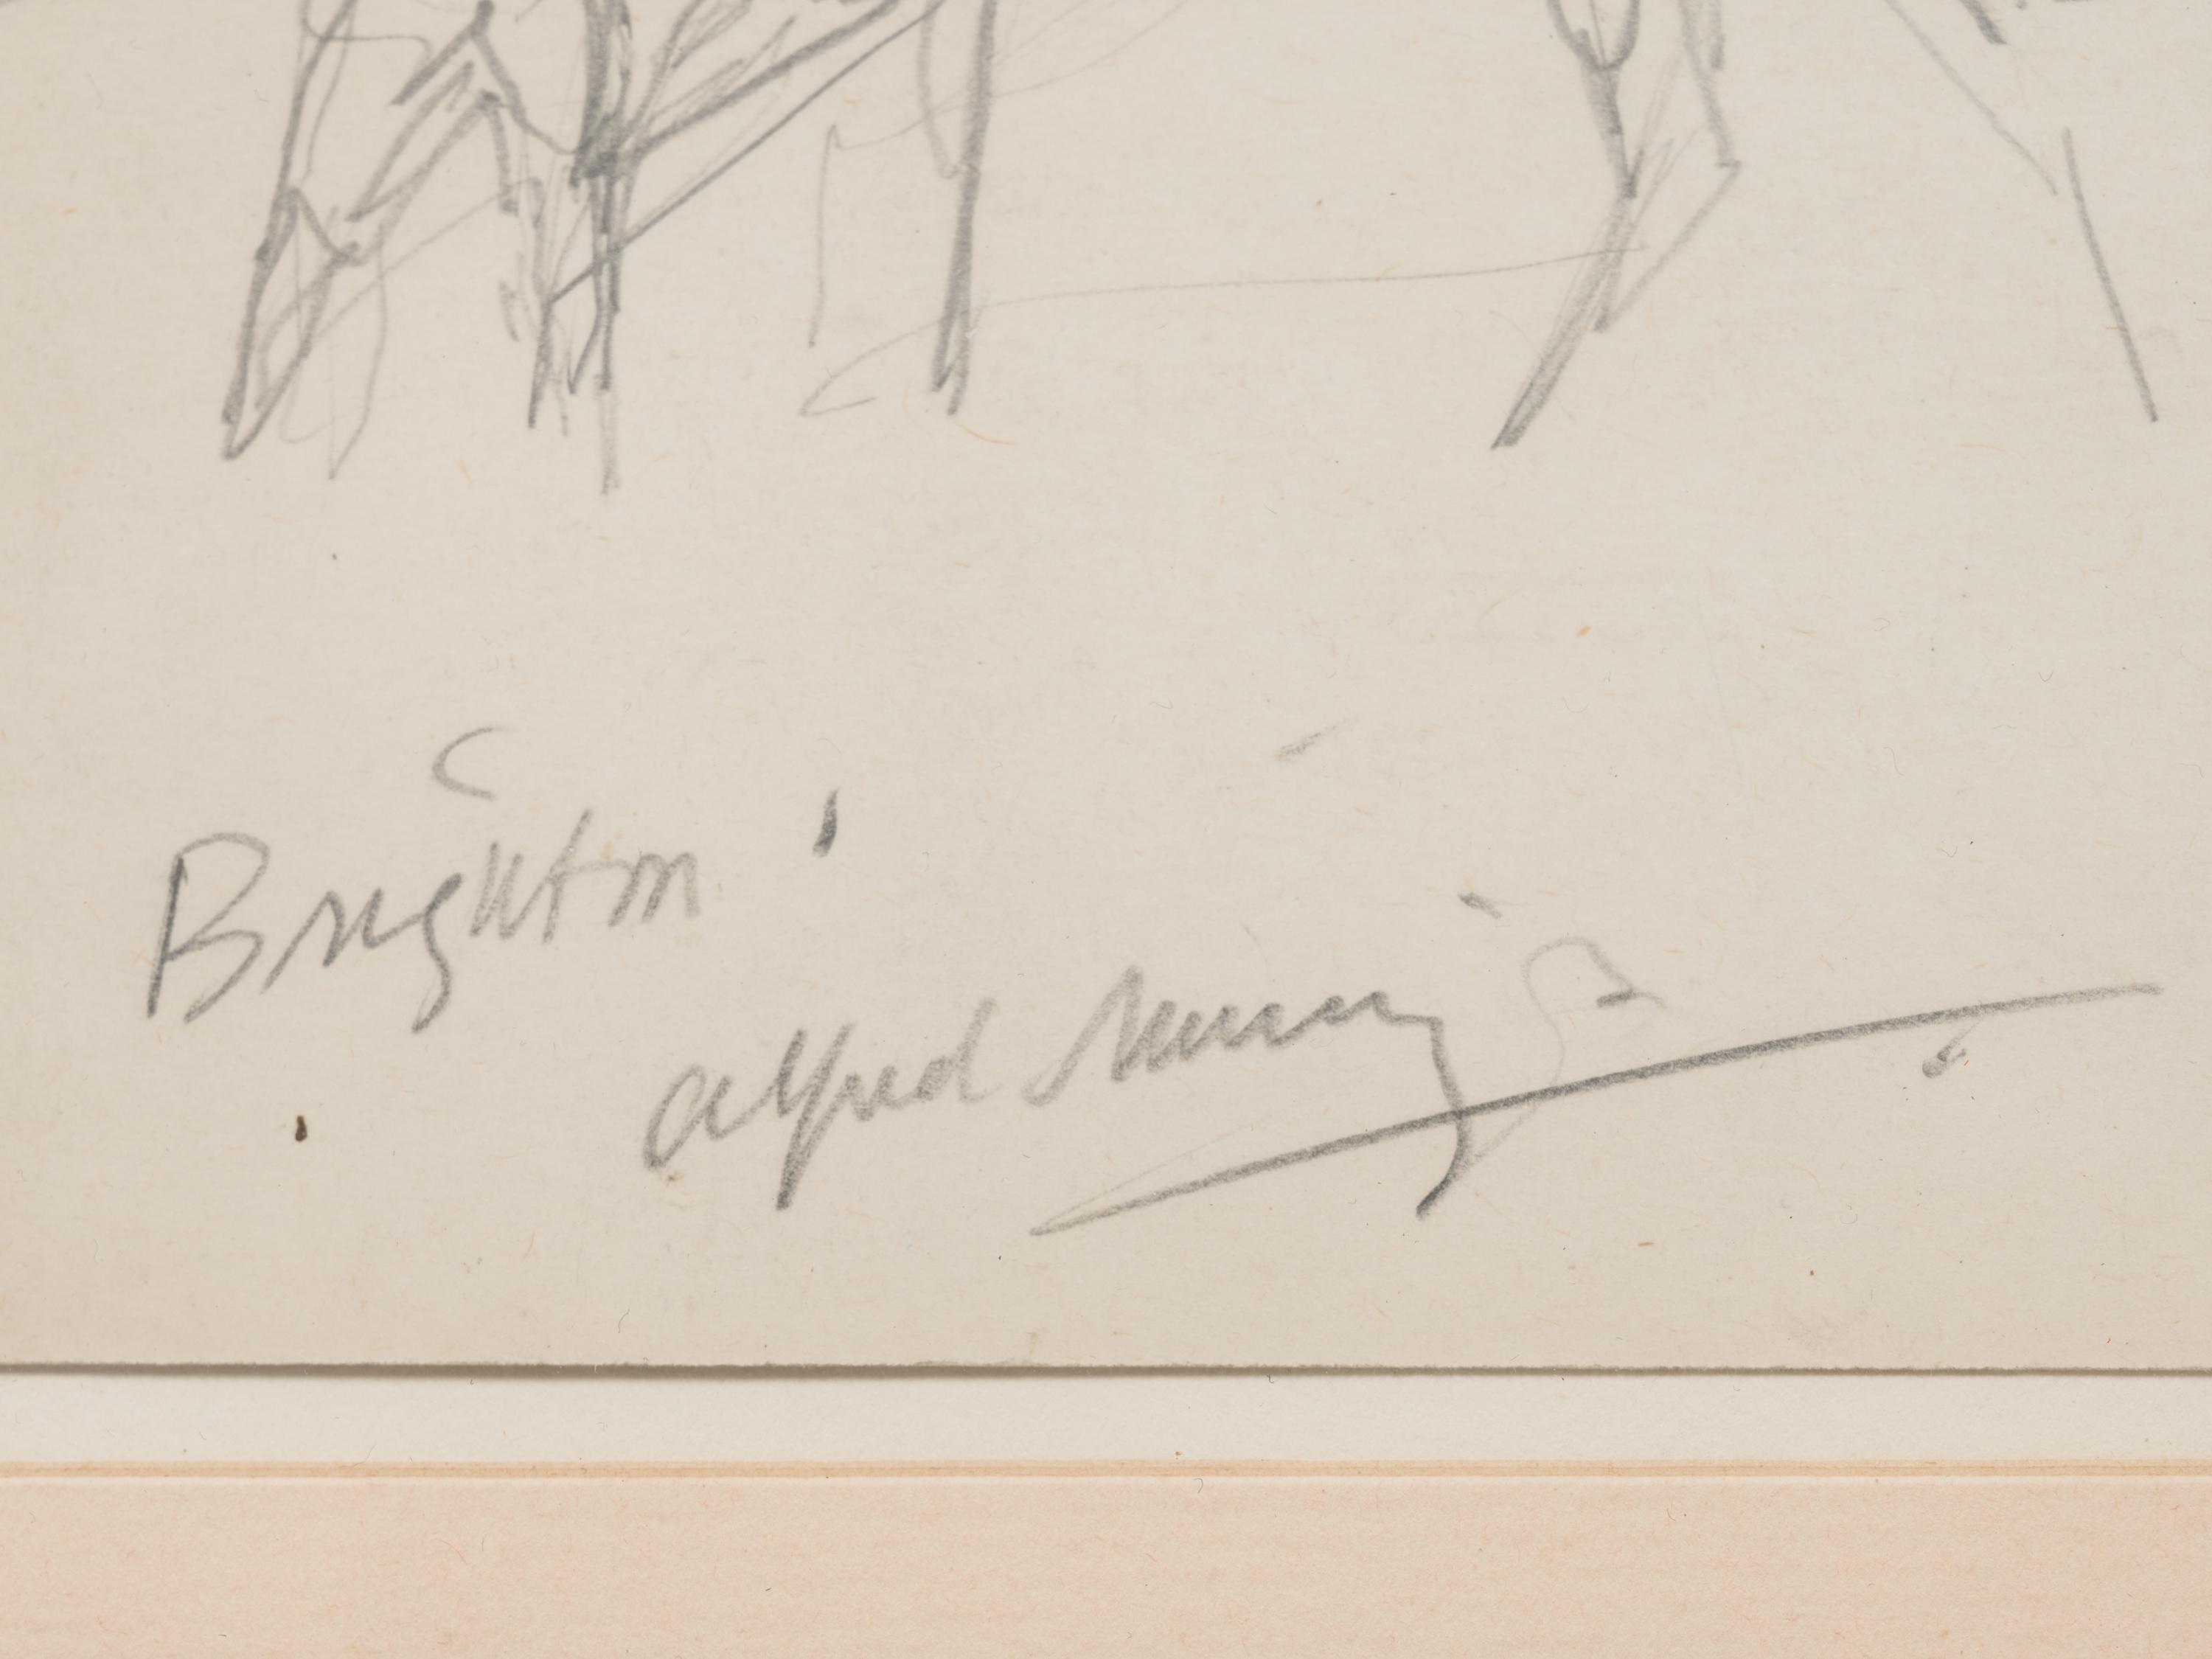 Brighton
Alfred Munnings